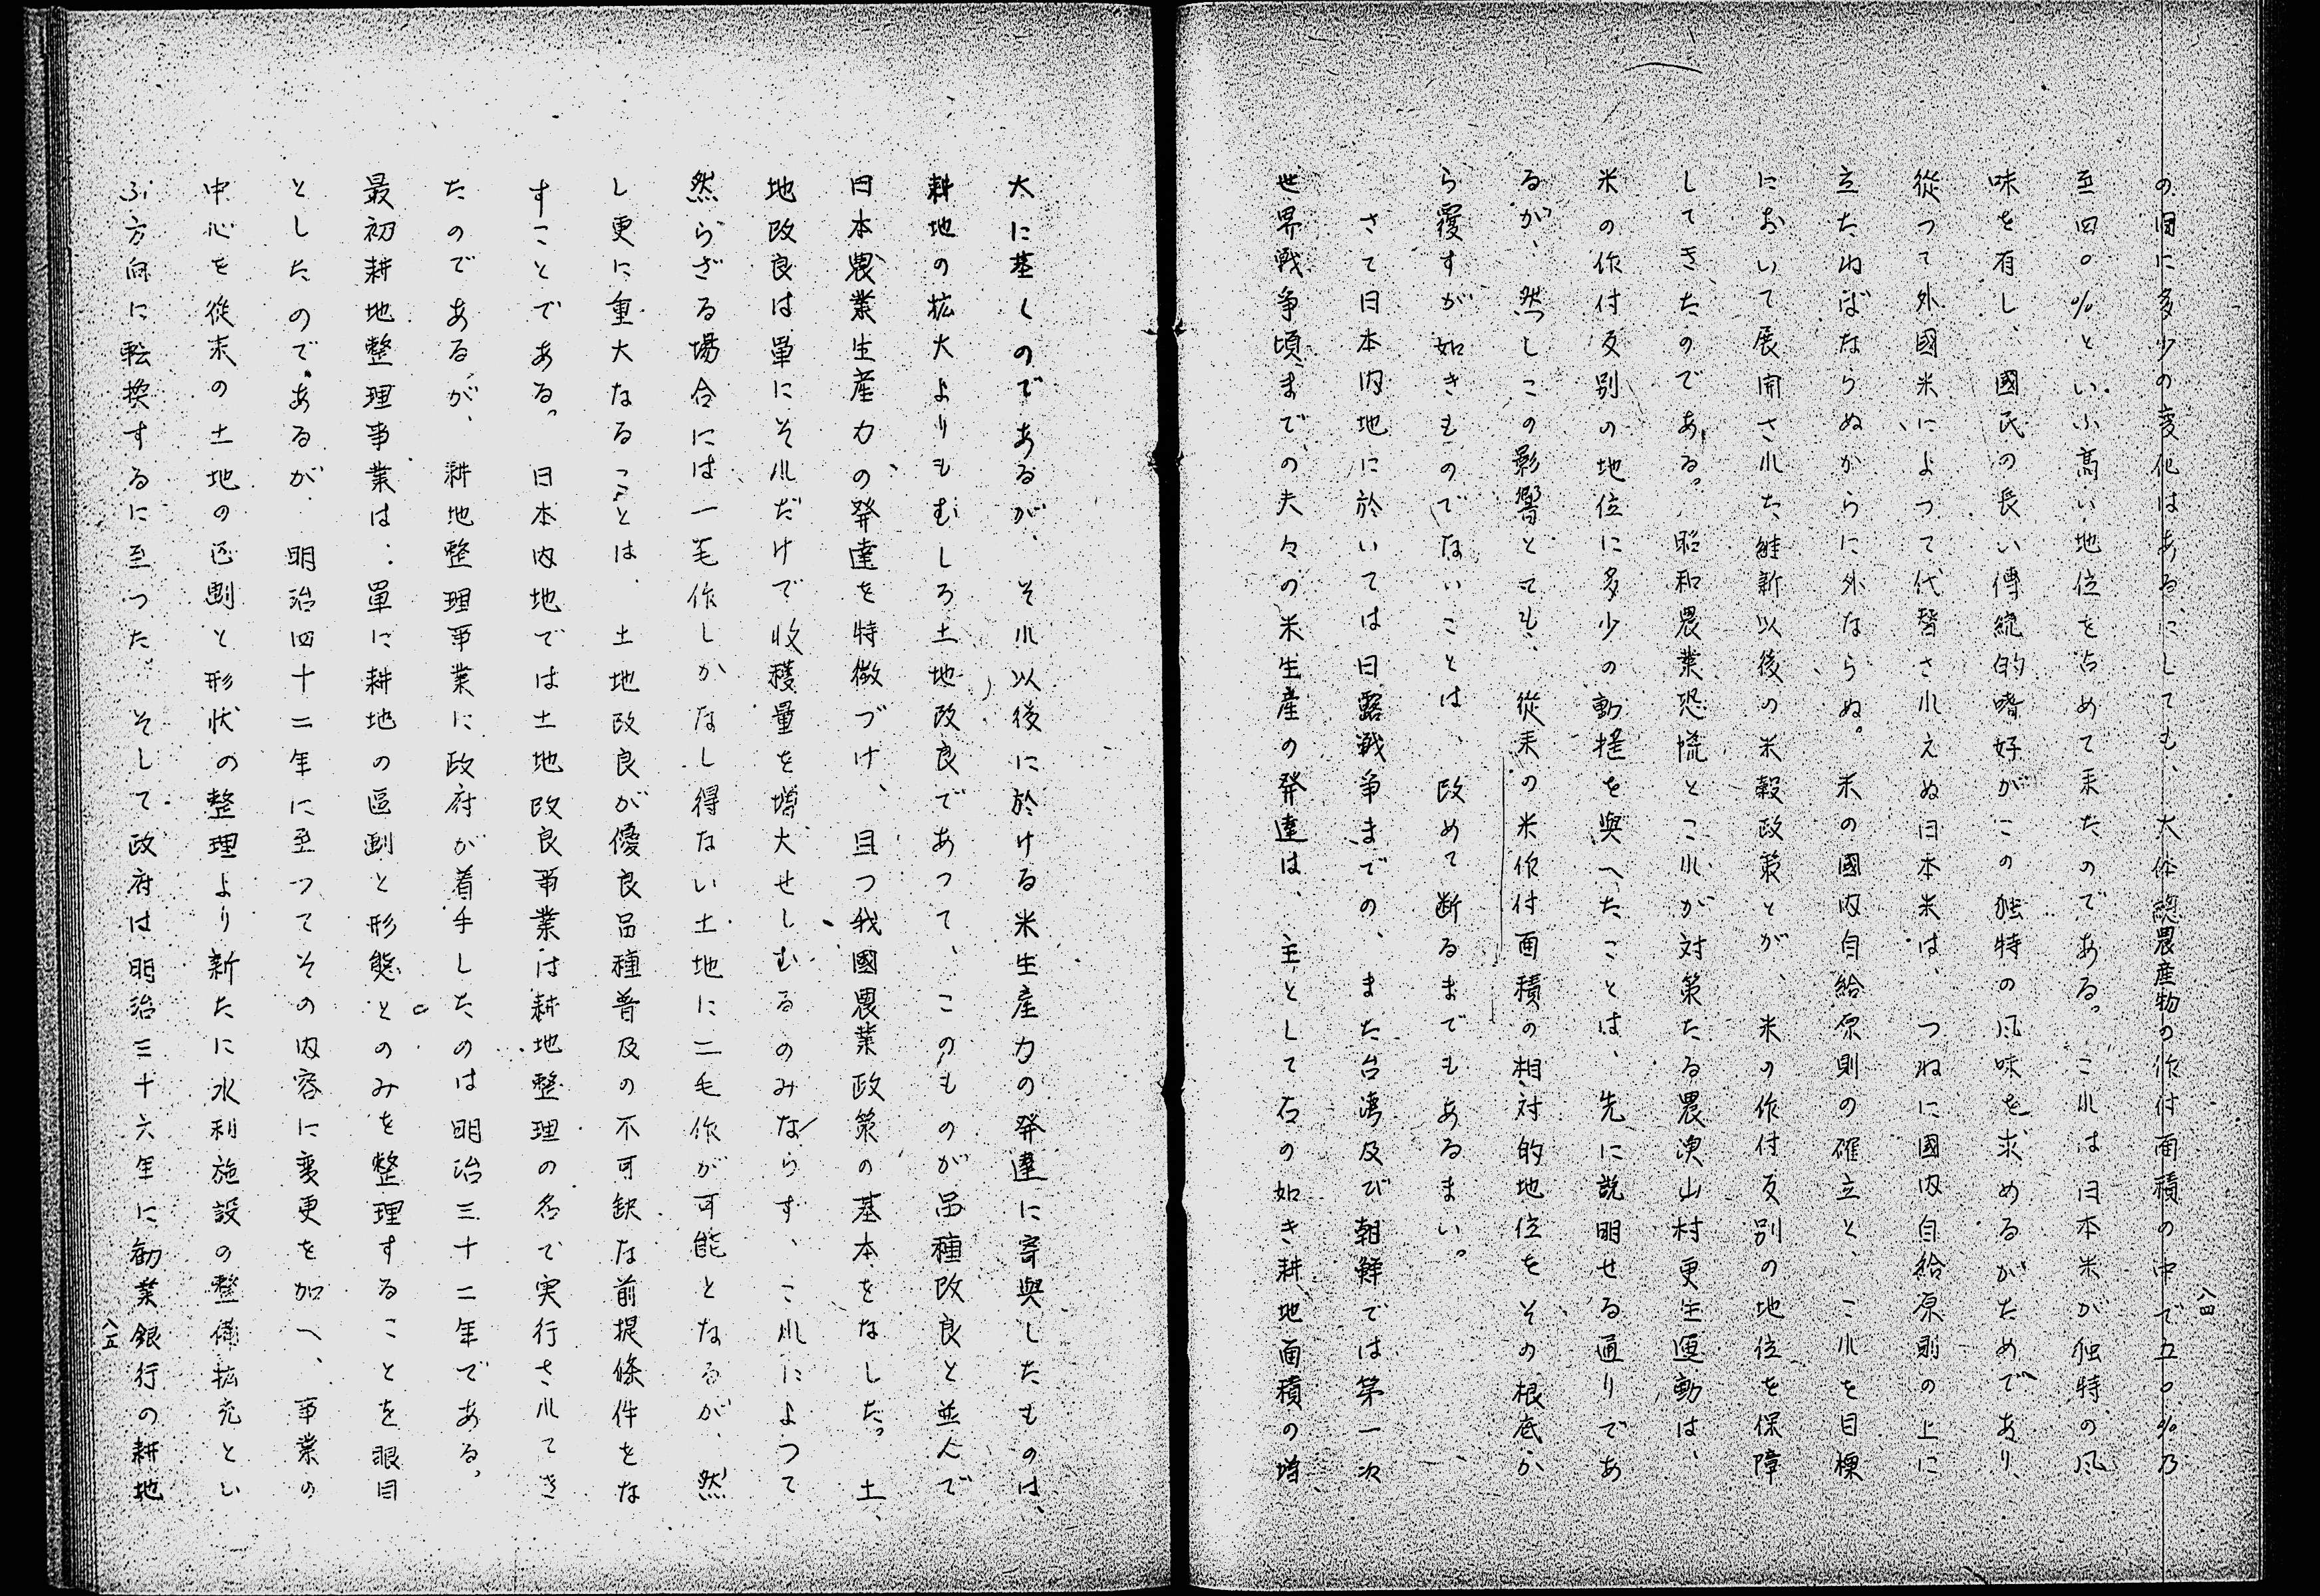 の間に多少の変化はあるにしても、大体總農産物の作付面積の中で五〇%乃
至四〇%といふ高い地位を占めて来たのである。これは日本米が独特の風
味を有し、國民の長い傳統的嗜好がこの独特の風味を求めるがためであり、
從つて外國米によつて代替されえぬ日本米は、つねに國内自給原則の上に
立たねばならぬからに外ならぬ。米の國内自給原則の確立と、これを目標
において展開された維新以後の米穀政策とが、米の作付反別の地位を保障
してきたのである。昭和農業恐慌とこれが対策たる農漁山村更生運動は、
米の作付反別の地位に多少の動揺を與へたことは、先に説明せる通りであ
るが、然しこの影響とても、從来の米作付面積の相対的地位をその根底か
ら覆すが如きものでないことは、改めて断るまでもあるまい。
さて日本内地に於いては日露戦争までの、また台湾及び朝鮮では第一次
世界戦争頃までの夫々の米生産の発達は、主として右の如き耕地面積の増
八四
大に基くのであるが、それ以後に於ける米生産力の発達に寄與したものは、
耕地の拡大よりもむしろ土地改良であつて、このものが品種改良と並んで
日本農業生産力の発達を特徴づけ、且つ我國農業政策の基本をなした。土
地改良は單にそれだけで收穫量を増大せしむるのみならず、これによつて
然らざる場合には一毛作しかなし得ない土地に二毛作が可能となるが、然
し更に重大なることは、土地改良が優良品種普及の不可缺な前提條件をな
すことである。日本内地では土地改良事業は耕地整理の名で実行されてき
たのであるが、耕地整理事業に政府が着手したのは明治三十二年である。
最初耕地整理事業は、單に耕地の區劃と形態とのみを整理することを眼目
としたのであるが、明治四十二年に至つてその内容に変更を加へ、事業の
中心を從来の土地の区劃と形状の整理より新たに水利施設の整備拡充とい
ふ方向に転換するに至つた。そして政府は明治三十六年に勧業銀行の耕地
八五